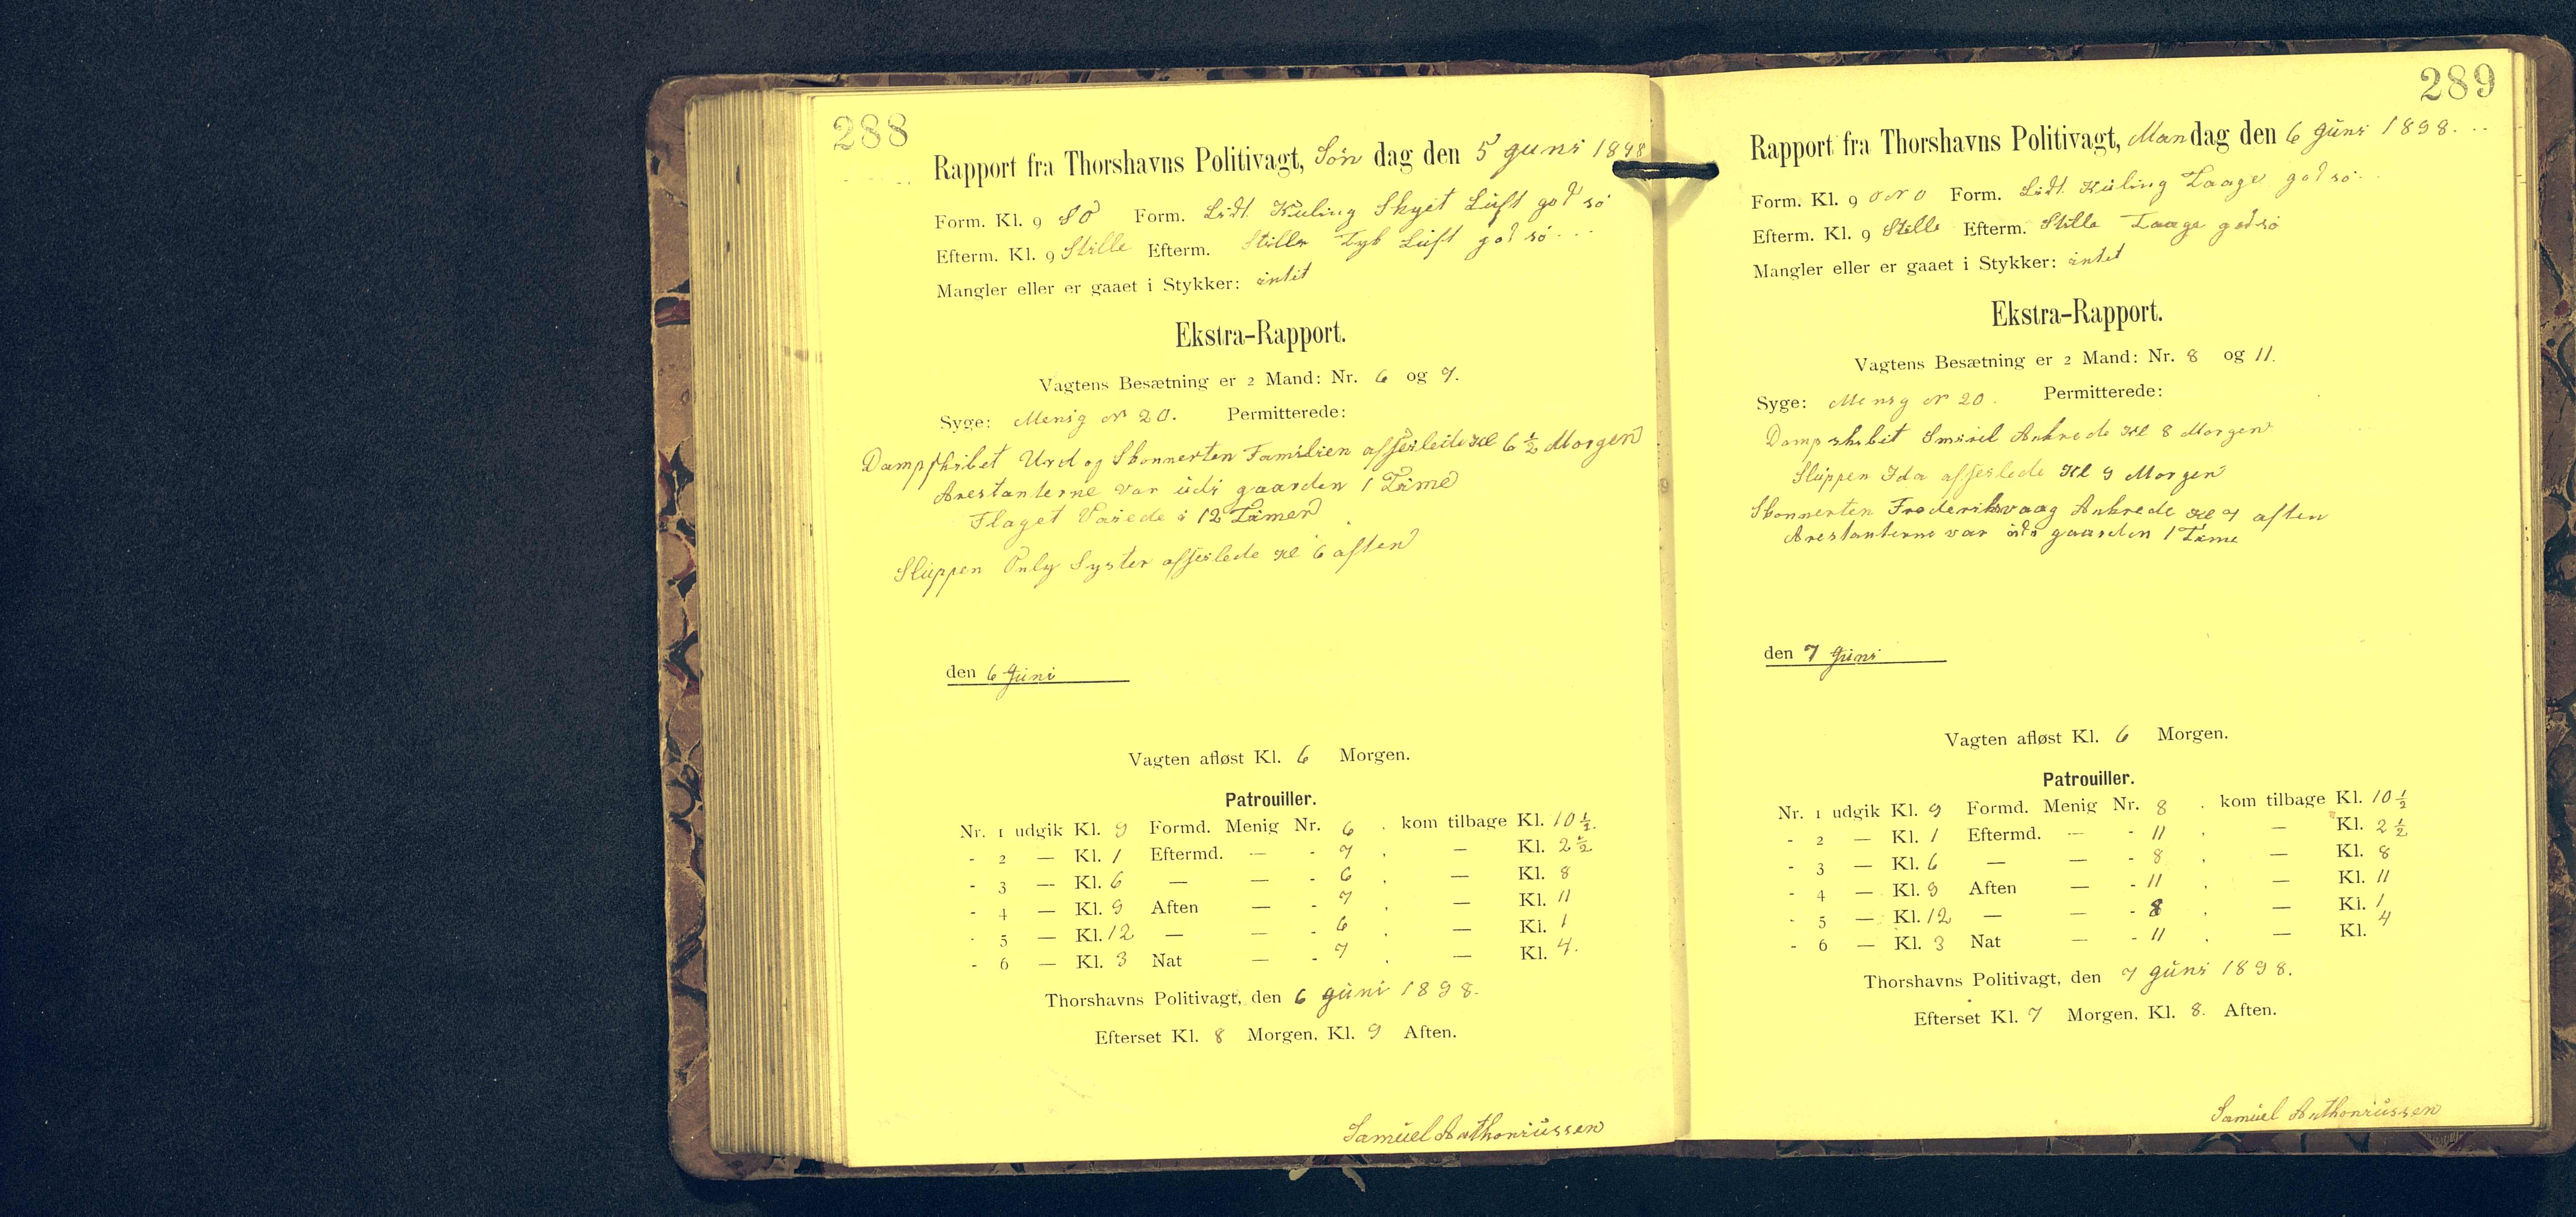 288
Rapport fra Thorshavns Politivagt, Søn dag den 5 Juni 1898
Form. Kl. 9 SO Form. Lidt Kuling Skyet Luft god sø
Efterm. Kl. 9 Stille Efterm. Stille Tyk Luft god sø
Mangler eller er gaaet i Stykker: intit
Ekstra-Rapport.
Vagtens Besætning er 2 Mand: Nr. 6 og 7.
Syge: Menig No 20. Permitterede:
Dampskibet Urd og Skonnerten Familien afseilede Kl 6 1/2 Morgen
Arestanterne var udi gaarden 1 Time
Flaget Vaiede i 12 Timer
Sluppen Only Syster afseilede Kl 6 aften
den 6 Juni
Vagten afløst Kl. 6 Morgen.
Patrouiller.
Nr. 1 udgik Kl. 9 Formd. Menig Nr. 6 . kom tilbage Kl. 10 1/2.
- 2 — Kl. 1 Eftermd. — - 7 . — Kl. 2 1/2
- 3 — Kl. 6 — — - 6 . — Kl. 8
- 4 — Kl. 9 Aften — - 7 . — Kl. 11
- 5 — Kl. 12 — — - 6 . — Kl. 1
- 6 — Kl. 3 Nat — - 7 . — Kl. 4.
Thorshavns Politivagt, den 6 Juni 1898.
Efterset Kl. 8 Morgen, Kl. 9 Aften.
Samuel Anthoniussen
289
Rapport fra Thorshavns Politivagt, Man dag den 6 Juni 1898.
Form. Kl. 9 ONO Form. Lidt Kuling Taage god sø
Efterm. Kl. 9 Stille Efterm. Stille Taage god sø
Mangler eller er gaaet i Stykker: intet
Ekstra-Rapport.
Vagtens Besætning er 2 Mand: Nr. 8 og 11.
Syge: Mensg No 20. Permitterede:
Dampskibet Smiril Ankrede Kl 8 Morgen
Sluppen Ida afseilede Kl 9 Morgen
Skonnerten Frederiksvaag Ankrede Kl 7 aften
Arestanterne var udi gaarden 1 Time
den 7 Juni
Vagten afløst Kl. 6 Morgen.
Patrouiller.
Nr. 1 udgik Kl. 9 Formd. Menig Nr. 8 . kom tilbage Kl. 10 1/2
- 2 — Kl. 1 Eftermd. — - 11 . — Kl. 2 1/2
- 3 — Kl. 6 — — - 8 . — Kl. 8
- 4 — Kl. 9 Aften — - 11 . — Kl. 11
- 5 — Kl. 12 — — - 8 . — Kl. 1
- 6 — Kl. 3 Nat — - 11 . — Kl. 4
Thorshavns Politivagt, den 7 Juni 1898.
Efterset Kl. 7 Morgen, Kl. 8. Aften.
Samuel Anthoniussen